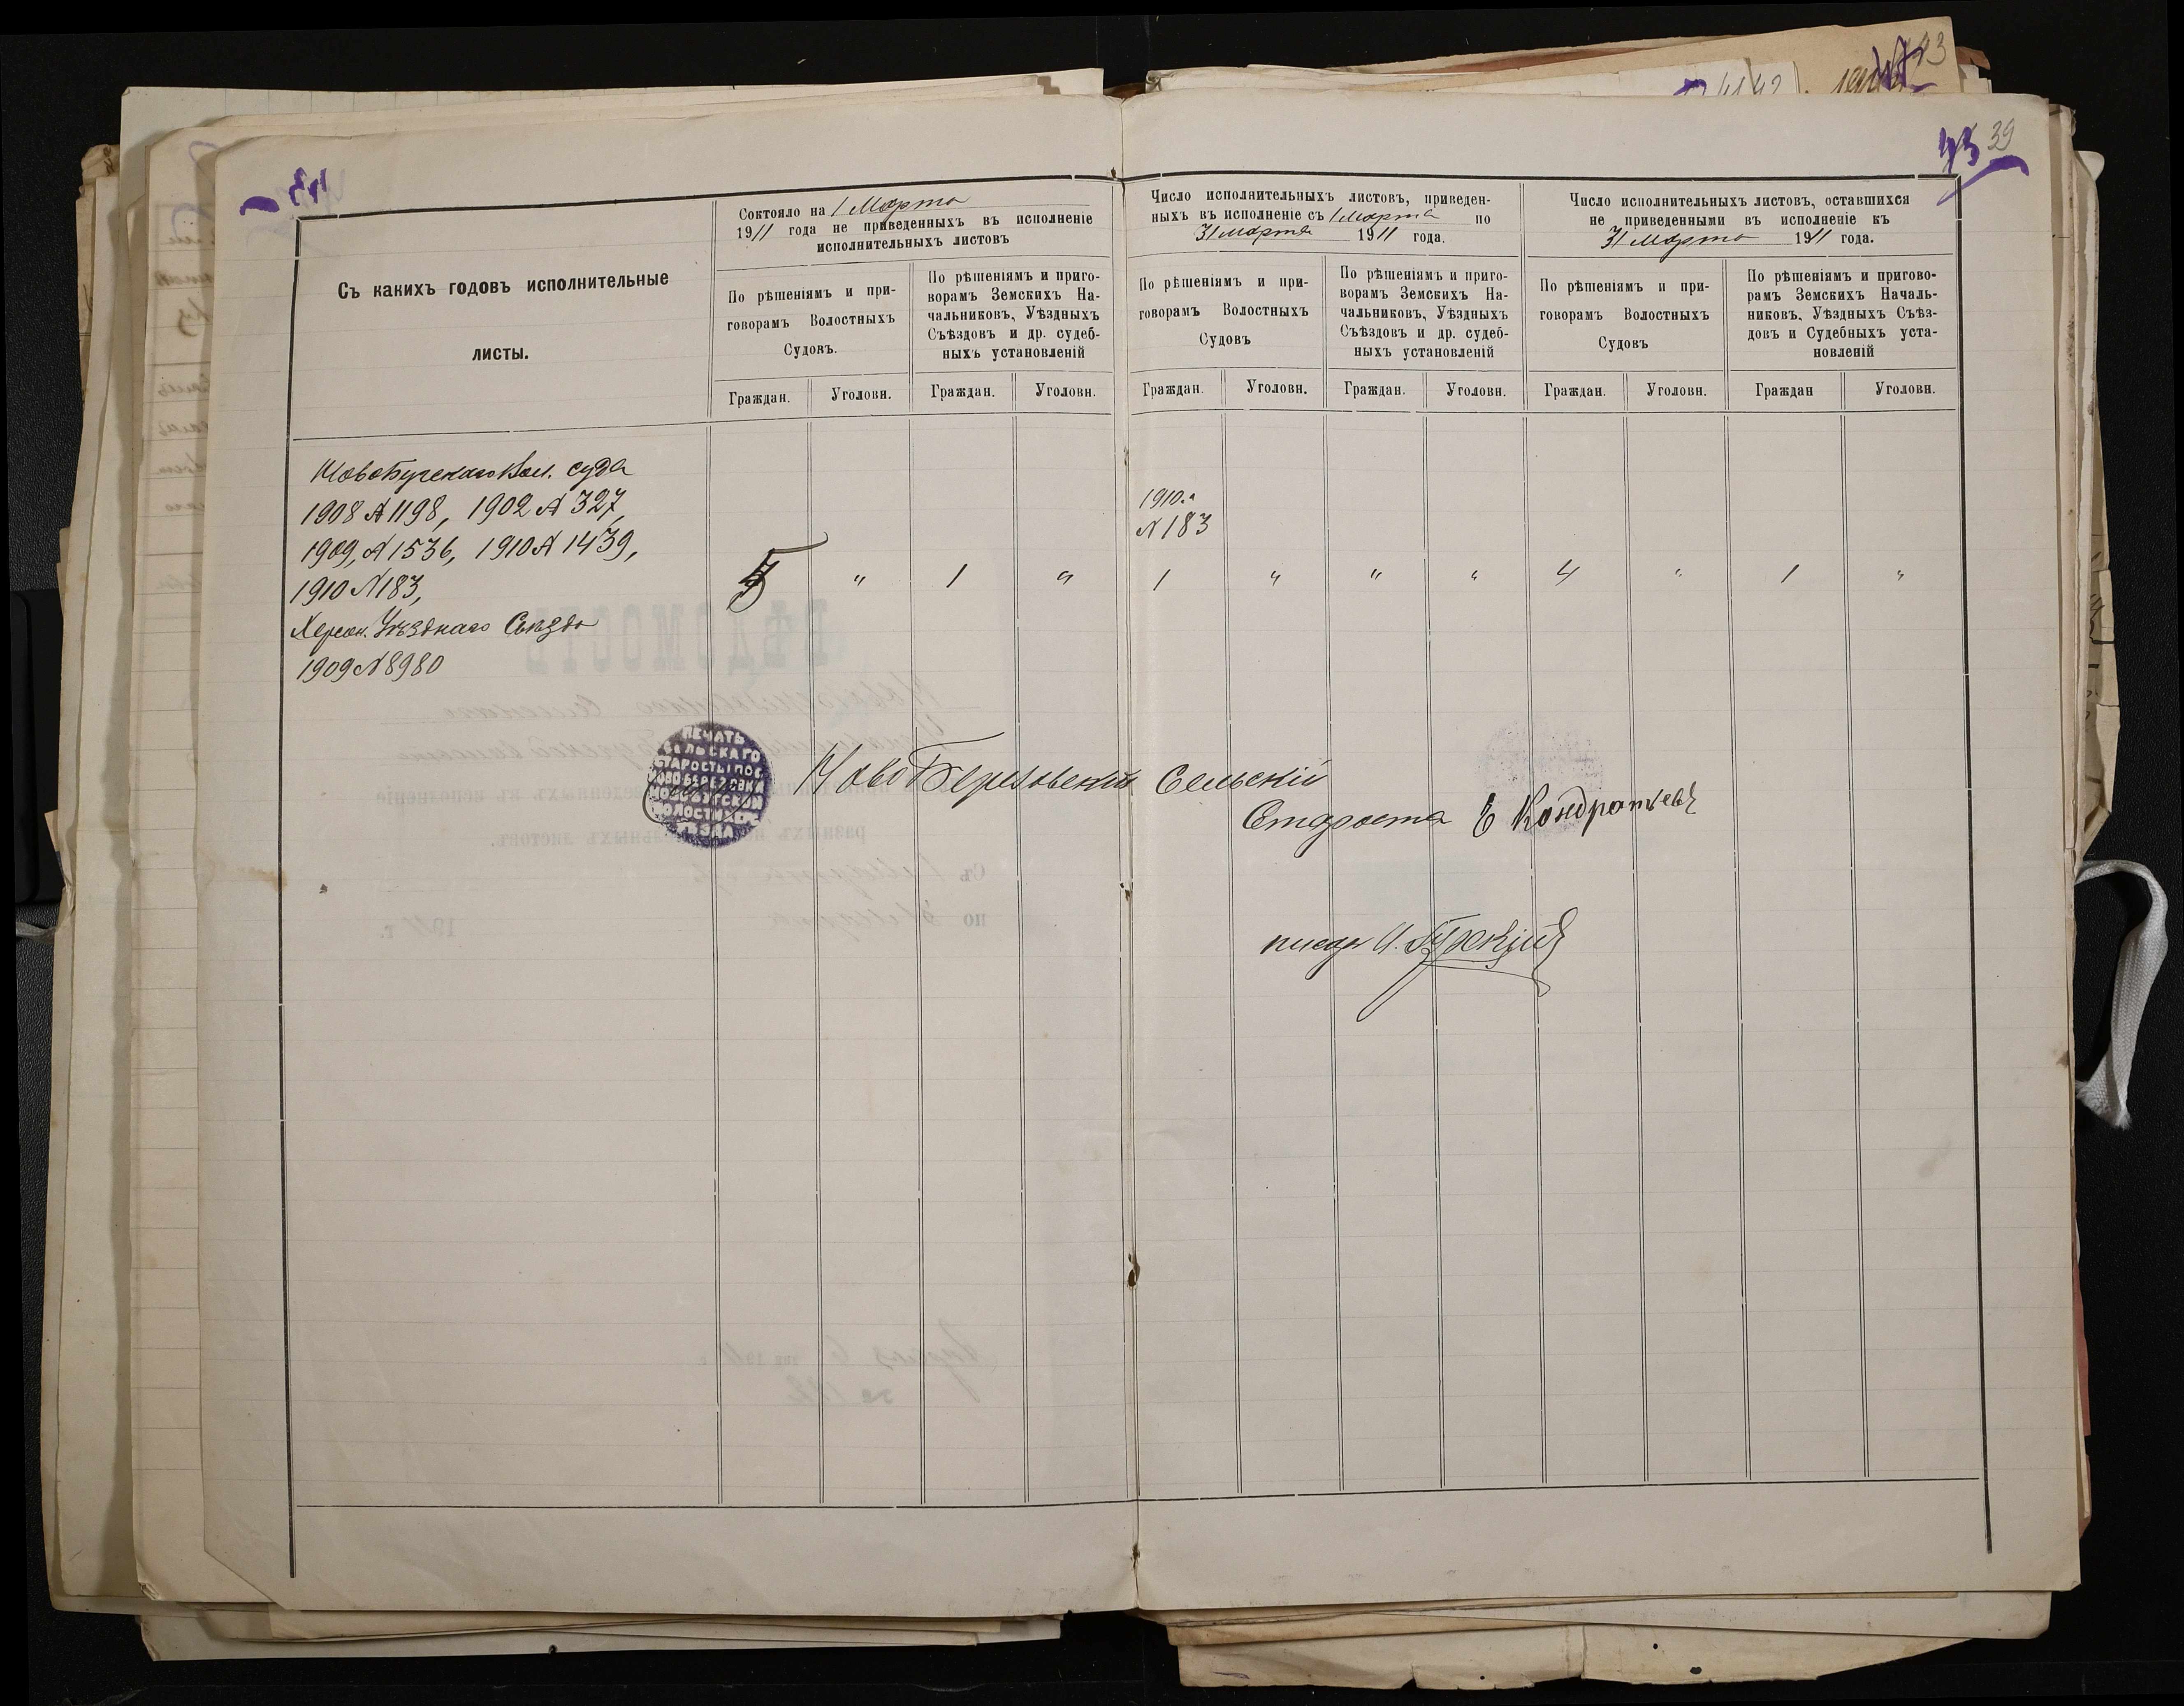 43 39
Съ какихъ годовъ исполнительные
листы.
Состояло на 1 Марта
1911 года не приведенныхъ въ исполненіе
исполнительныхъ листовъ
По рѣшеніямъ и при-
говорамъ Волостныхъ
Судовъ.
По рѣшеніямъ и приго-
ворамъ Земскихъ На-
чальниковъ, Уѣздныхъ
Съѣздовъ и др. судеб-
ныхъ установленій
Граждан. Уголовн. Граждан. Уголовн.
Число исполнительныхъ листовъ, приведен-
ныхъ въ исполненіе съ 1 Марта по
31 Марта 1911 года.
По рѣшеніямъ и при-
говорамъ Волостныхъ
Судовъ
По рѣшеніямъ и приго-
ворамъ Земскихъ На-
чальниковъ, Уѣздныхъ
Съѣздовъ и др. судеб-
ныхъ установленій
Граждан. Уголовн. Граждан. Уголовн.
Число исполнительныхъ листовъ, оставшихся
не приведенными въ исполненіе къ
31 Марта 1911 года.
По рѣшеніямъ и при-
говорамъ Волостныхъ
Судовъ
По рѣшеніямъ и пригово-
рамъ Земскихъ Началь-
никовъ, Уѣздныхъ Съѣз-
довъ и Судебныхъ уста-
новленій
Граждан. Уголовн. Граждан Уголовн.
НовоБугскаго Вол. суда
1908 № 1198, 1902 № 327,
1909, № 1536, 1910 № 1439,
1910 № 183,
Херсон. Уѣзднаго Съѣзда
1909 № 8980
5 " 1 "
1910 г.
№ 183
1 " " " 4 " 1 "
ПЕЧАТЬ
СЕЛЬСКАГО
СТАРОСТЫ ПОС.
НОВО-БЕРЕЗОВКИ
НОВО-БУГСКОЙ
ВОЛОСТИ ХЕР.
УѢЗДА
НовоБерезовскій Сельскій
Староста Е Кондратьевъ
писарь